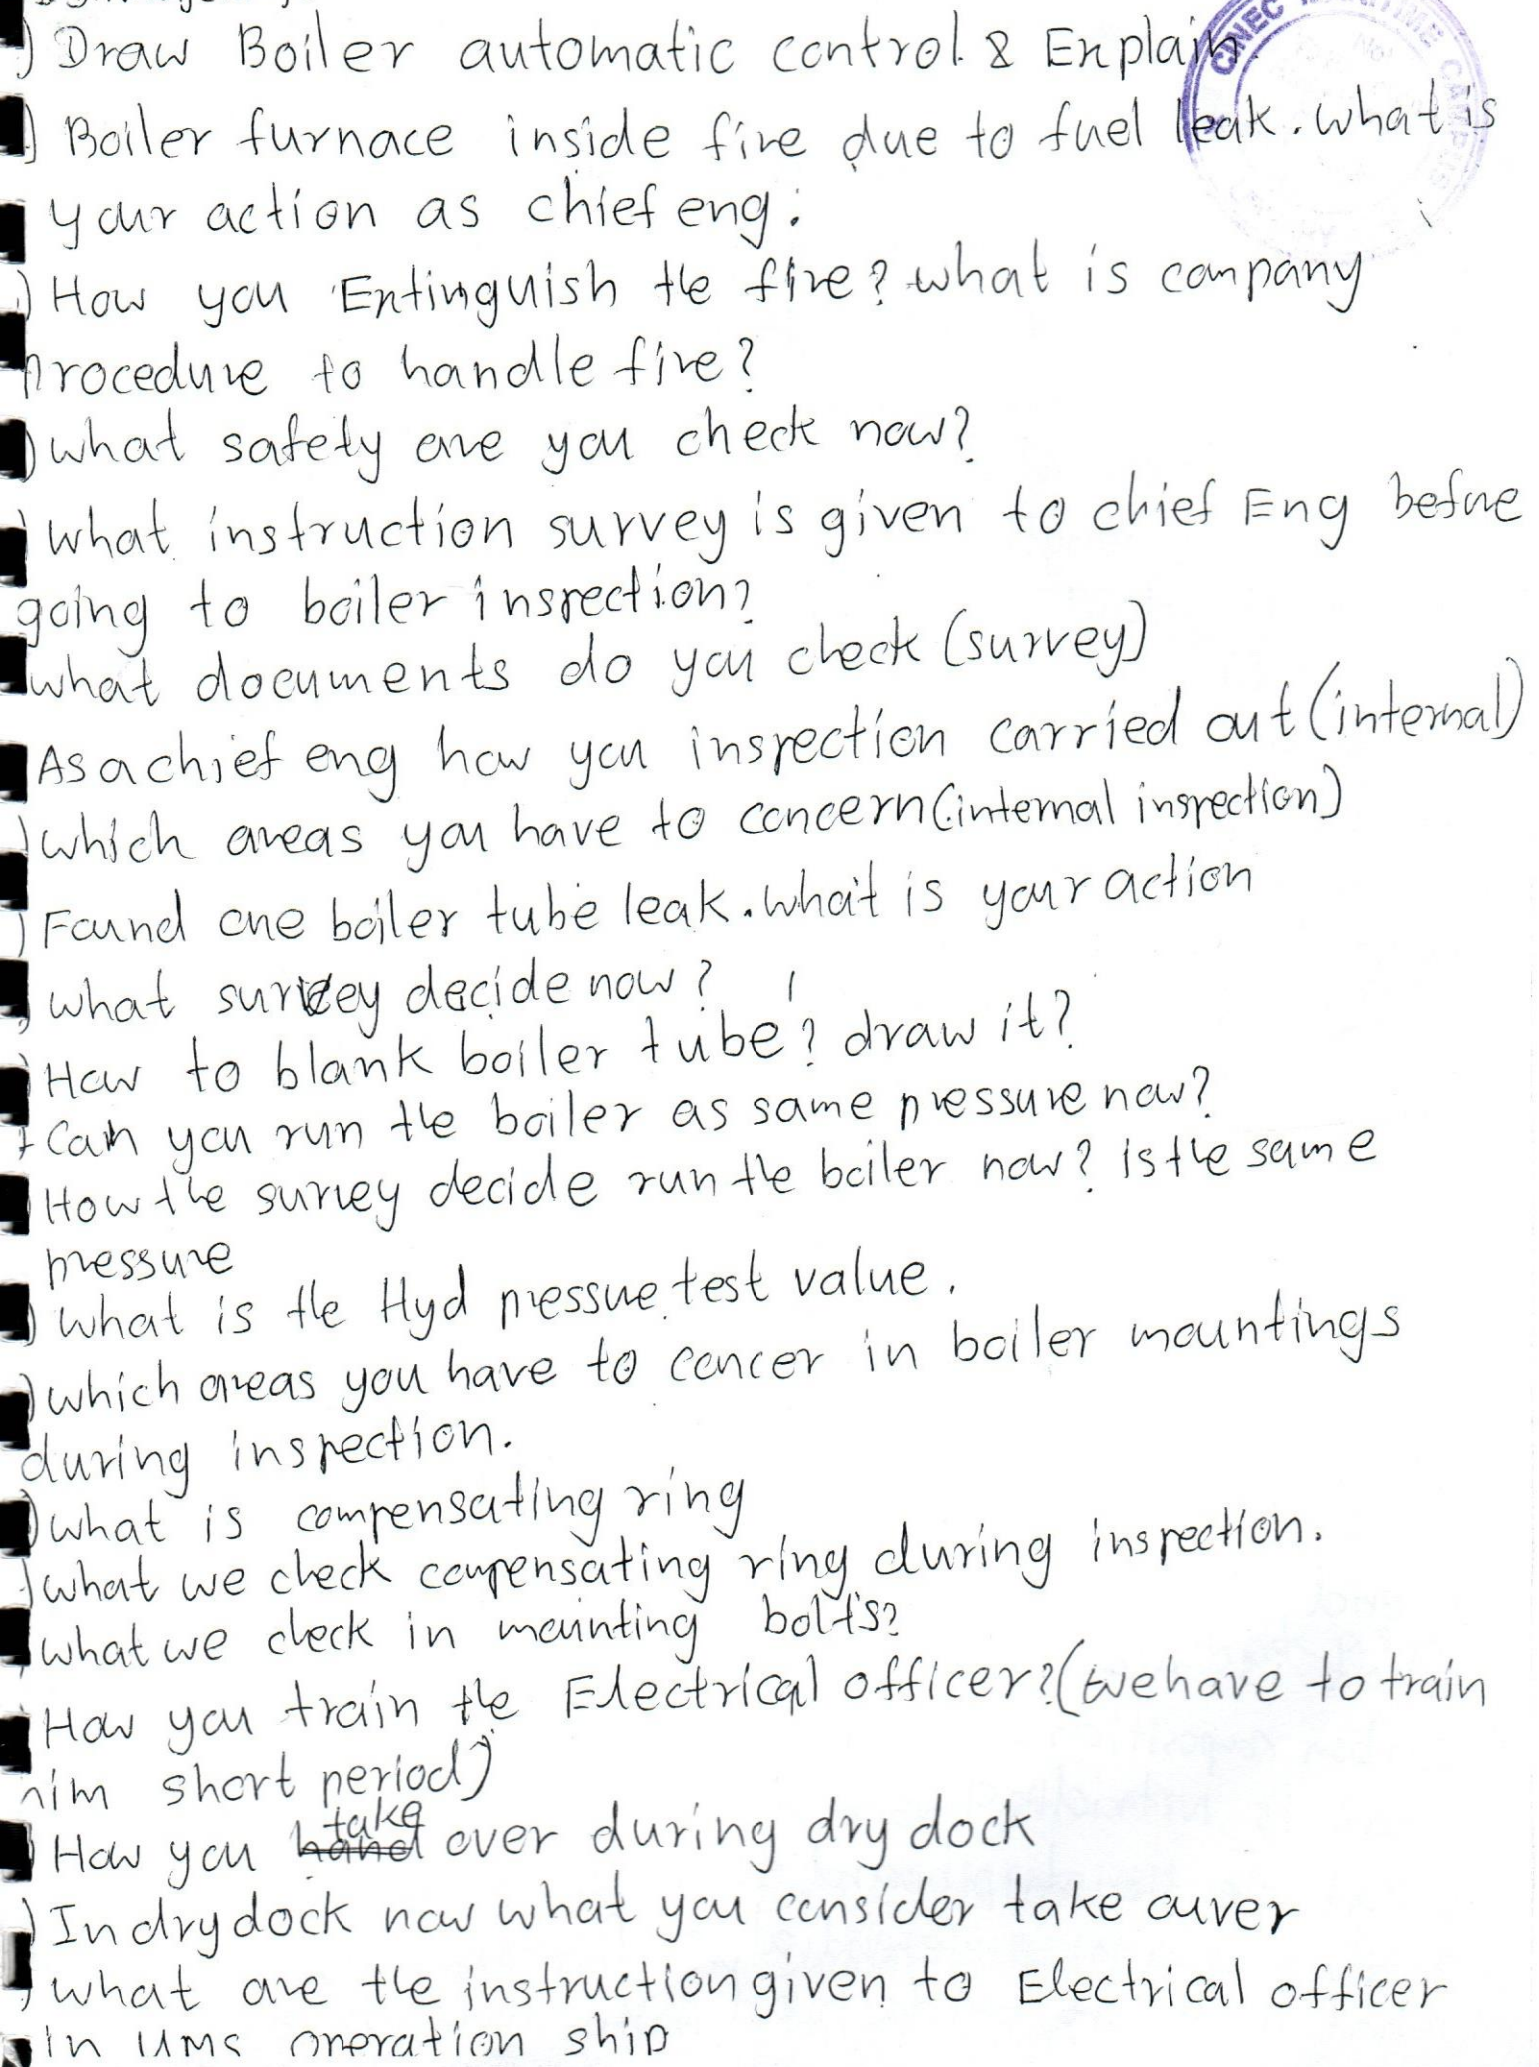 ) Draw Boiler automatic control & Explain
) Boiler furnace inside fire due to fuel leak. What is
your action as chief eng:
) How you Extinguish the fire? what is company
procedure to handle fire?
) what safety are you check now?
) what instruction survey is given to chief Eng before
going to boiler inspection?
what documents do you check (survey)
As a chief eng how you inspection carried out (internal)
) which areas you have to concern (internal inspection)
) Found one boiler tube leak. What is your action
) what survey decide now?
) How to blank boiler tube? draw it?
Can you run the boiler as same pressure now?
) How the survey decide run the boiler now? Is the same
pressure
) what is the Hyd pressure test value.
) which areas you have to concer in boiler mountings
during inspection.
) what is compensating ring
) what we check compensating ring during inspection.
) what we check in mounting bolts?
How you train the Electrical officer? (we have to train
him short period)
) How you take over during dry dock
) In dry dock now what you consider take ouver
) what are the instruction given to Electrical officer
in UMS operation ship
CINEC MARITIME CAMPUS